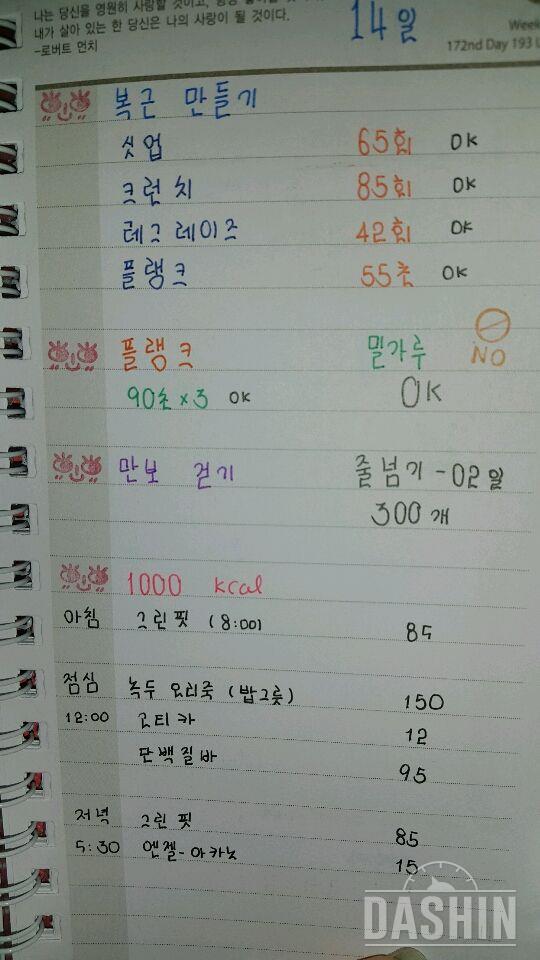 나는 당신을 영원히 사랑할 것이고,
내가 살아 있는 한 당신은 나의 사랑이 될 것이다.
-로버트 먼치
14일
Week
172nd Day 193
복근 만들기
싯업 65회 OK
크런치 85회 OK
레그레이즈 42회 OK
플랭크 55초 OK
플랭크 밀가루 NO
90초×3 OK OK
만보 걷기 줄넘기 -02일
300개
1000 kcal
아침 그린핏 (8:00) 85
점심 녹두 오리죽 (밥그릇) 150
12:00 고티카 12
단백질바 95
저녁 그린핏 85
5:30 엔젤-아카노 15
DASHIN